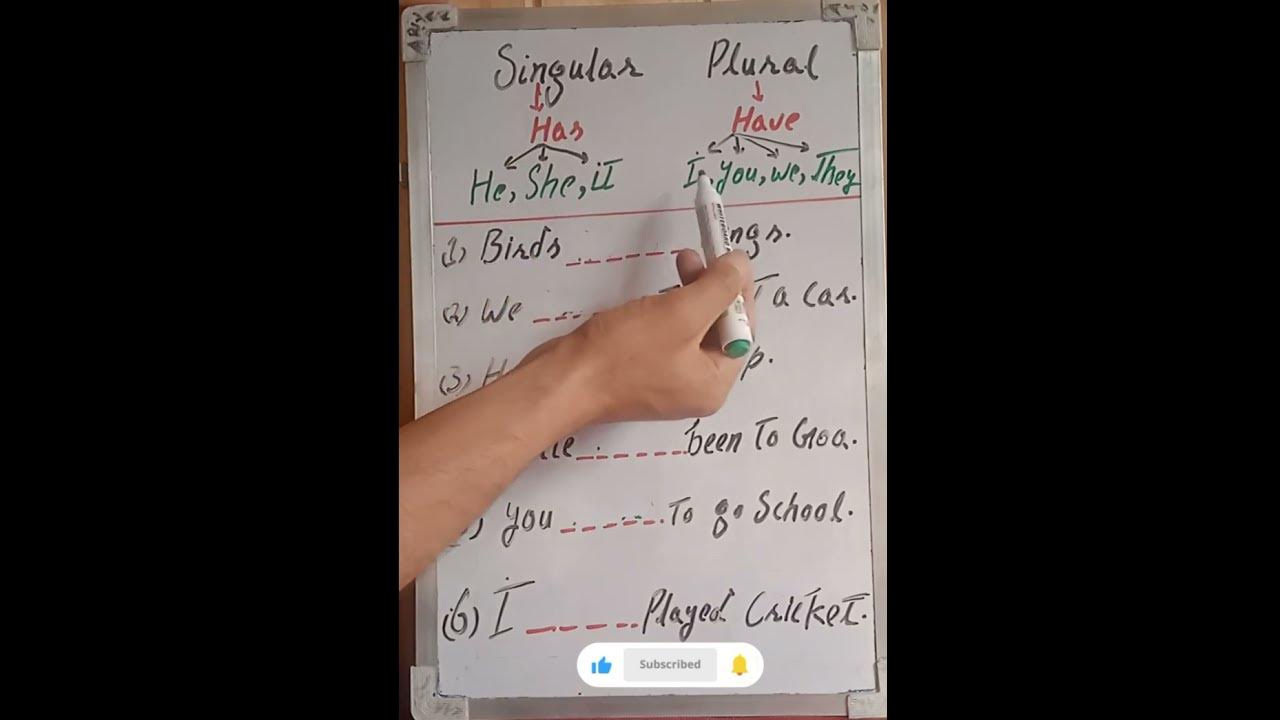 Singular Plural
Has Have
He, She, iT I, you, we, They
(1) Birds _ _ _ _ _ ngs.
(2) We _ _ _ T a Car.
(3) H p.
_ _ _ _ _ been To Goa.
) you _ _ _ _ _ To go School.
(6) I _ _ _ _ _ Played CrickeT.
Subscribed